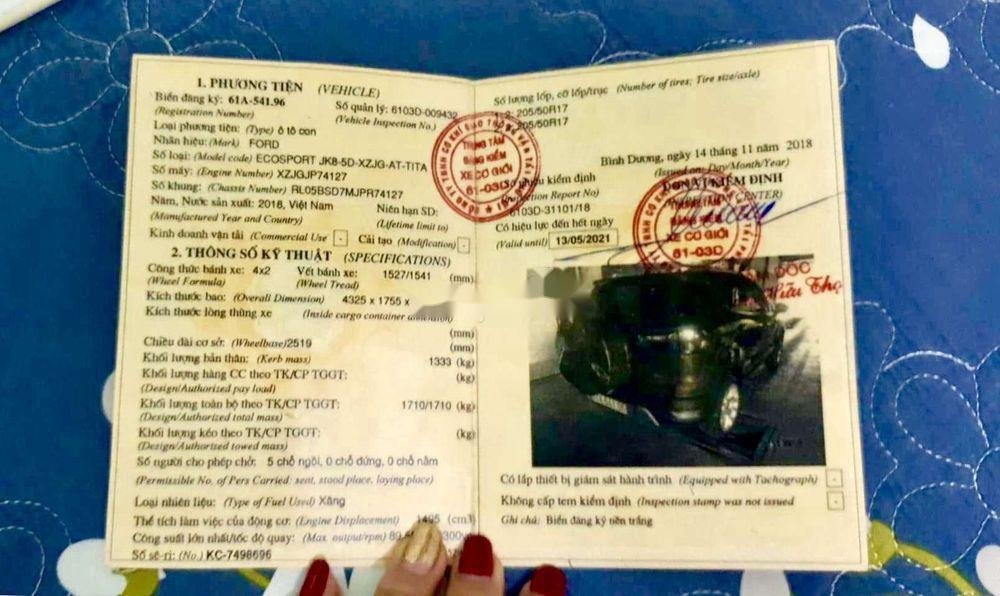 1. PHƯƠNG TIỆN (VEHICLE)
Biển đăng ký: 61A-541.96
(Registration Number)
Số quản lý: 6103D-009432
(Vehicle Inspection No.)
Loại phương tiện: (Type) ô tô con
Nhãn hiệu: (Mark) FORD
Số loại: (Model code) ECOSPORT JK8-5D-XZJG-AT-TITA
Số máy: (Engine Number) XZJGJP74127
Số khung: (Chassis Number) RL05BSD7MJPR74127
Năm, Nước sản xuất: 2018, Việt Nam
(Manufactured Year and Country)
Niên hạn SD:
(Lifetime limit to)
Kinh doanh vận tải (Commercial Use) - Cải tạo (Modification) -
2. THÔNG SỐ KỸ THUẬT (SPECIFICATIONS)
Công thức bánh xe: 4x2
(Wheel Formula)
Vết bánh xe: 1527/1541 (mm)
(Wheel Tread)
Kích thước bao: (Overall Dimension) 4325 x 1755 x
Kích thước lòng thùng xe (Inside cargo container dimension)
(mm)
Chiều dài cơ sở: (Wheelbase) 2519 (mm)
Khối lượng bản thân: (Kerb mass) 1333 (kg)
Khối lượng hàng CC theo TK/CP TGGT: (kg)
(Design/Authorized pay load)
Khối lượng toàn bộ theo TK/CP TGGT: 1710/1710 (kg)
(Design/Authorized total mass)
Khối lượng kéo theo TK/CP TGGT: (kg)
(Design/Authorized towed mass)
Số người cho phép chở: 5 chỗ ngồi, 0 chỗ đứng, 0 chỗ nằm
(Permissible No. of Pers Carried: seat, stood place, laying place)
Loại nhiên liệu: (Type of Fuel Used) Xăng
Thể tích làm việc của động cơ: (Engine Displacement) (cm³)
Công suất lớn nhất/tốc độ quay: (Max. output/rpm)
Số sê-ri: (No.) KC-7498696
Số lượng lốp, cỡ lốp/trục (Number of tires; Tire size/axle)
2: 205/50R17
205/50R17
Bình Dương, ngày 14 tháng 11 năm 2018
(Issued on: Day/Month/Year)
ĐƠN VỊ KIỂM ĐỊNH
CENTER)
Số phiếu kiểm định
(Inspection Report No)
6103D-31101/18
Có hiệu lực đến hết ngày
(Valid until) 13/05/2021
TRUNG TÂM
ĐĂNG KIỂM
XE CƠ GIỚI
61-03D
TRUNG TÂM
ĐĂNG KIỂM
XE CƠ GIỚI
61-03D
ĐỐC
Hữu Thọ
Có lắp thiết bị giám sát hành trình (Equipped with Tachograph) -
Không cấp tem kiểm định (Inspection stamp was not issued -
Ghi chú: Biển đăng ký nền trắng